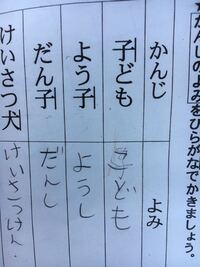 かんじのよみをひらがなでかきましょう。
かんじ よみ
子ども こども
よう子 ようし
だん子 だんし
けいさつ犬 けいさつけん